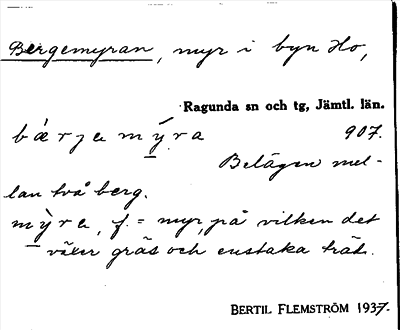 Bergemyran, myr i byn Ho,
Ragunda sn och tg, Jämtl. län.
bærjemýra 907.
Belägen mel-
lan två berg.
mỳra, f. = myr, på vilken det
växer gräs och enstaka träd.
BERTIL FLEMSTRÖM 1937.